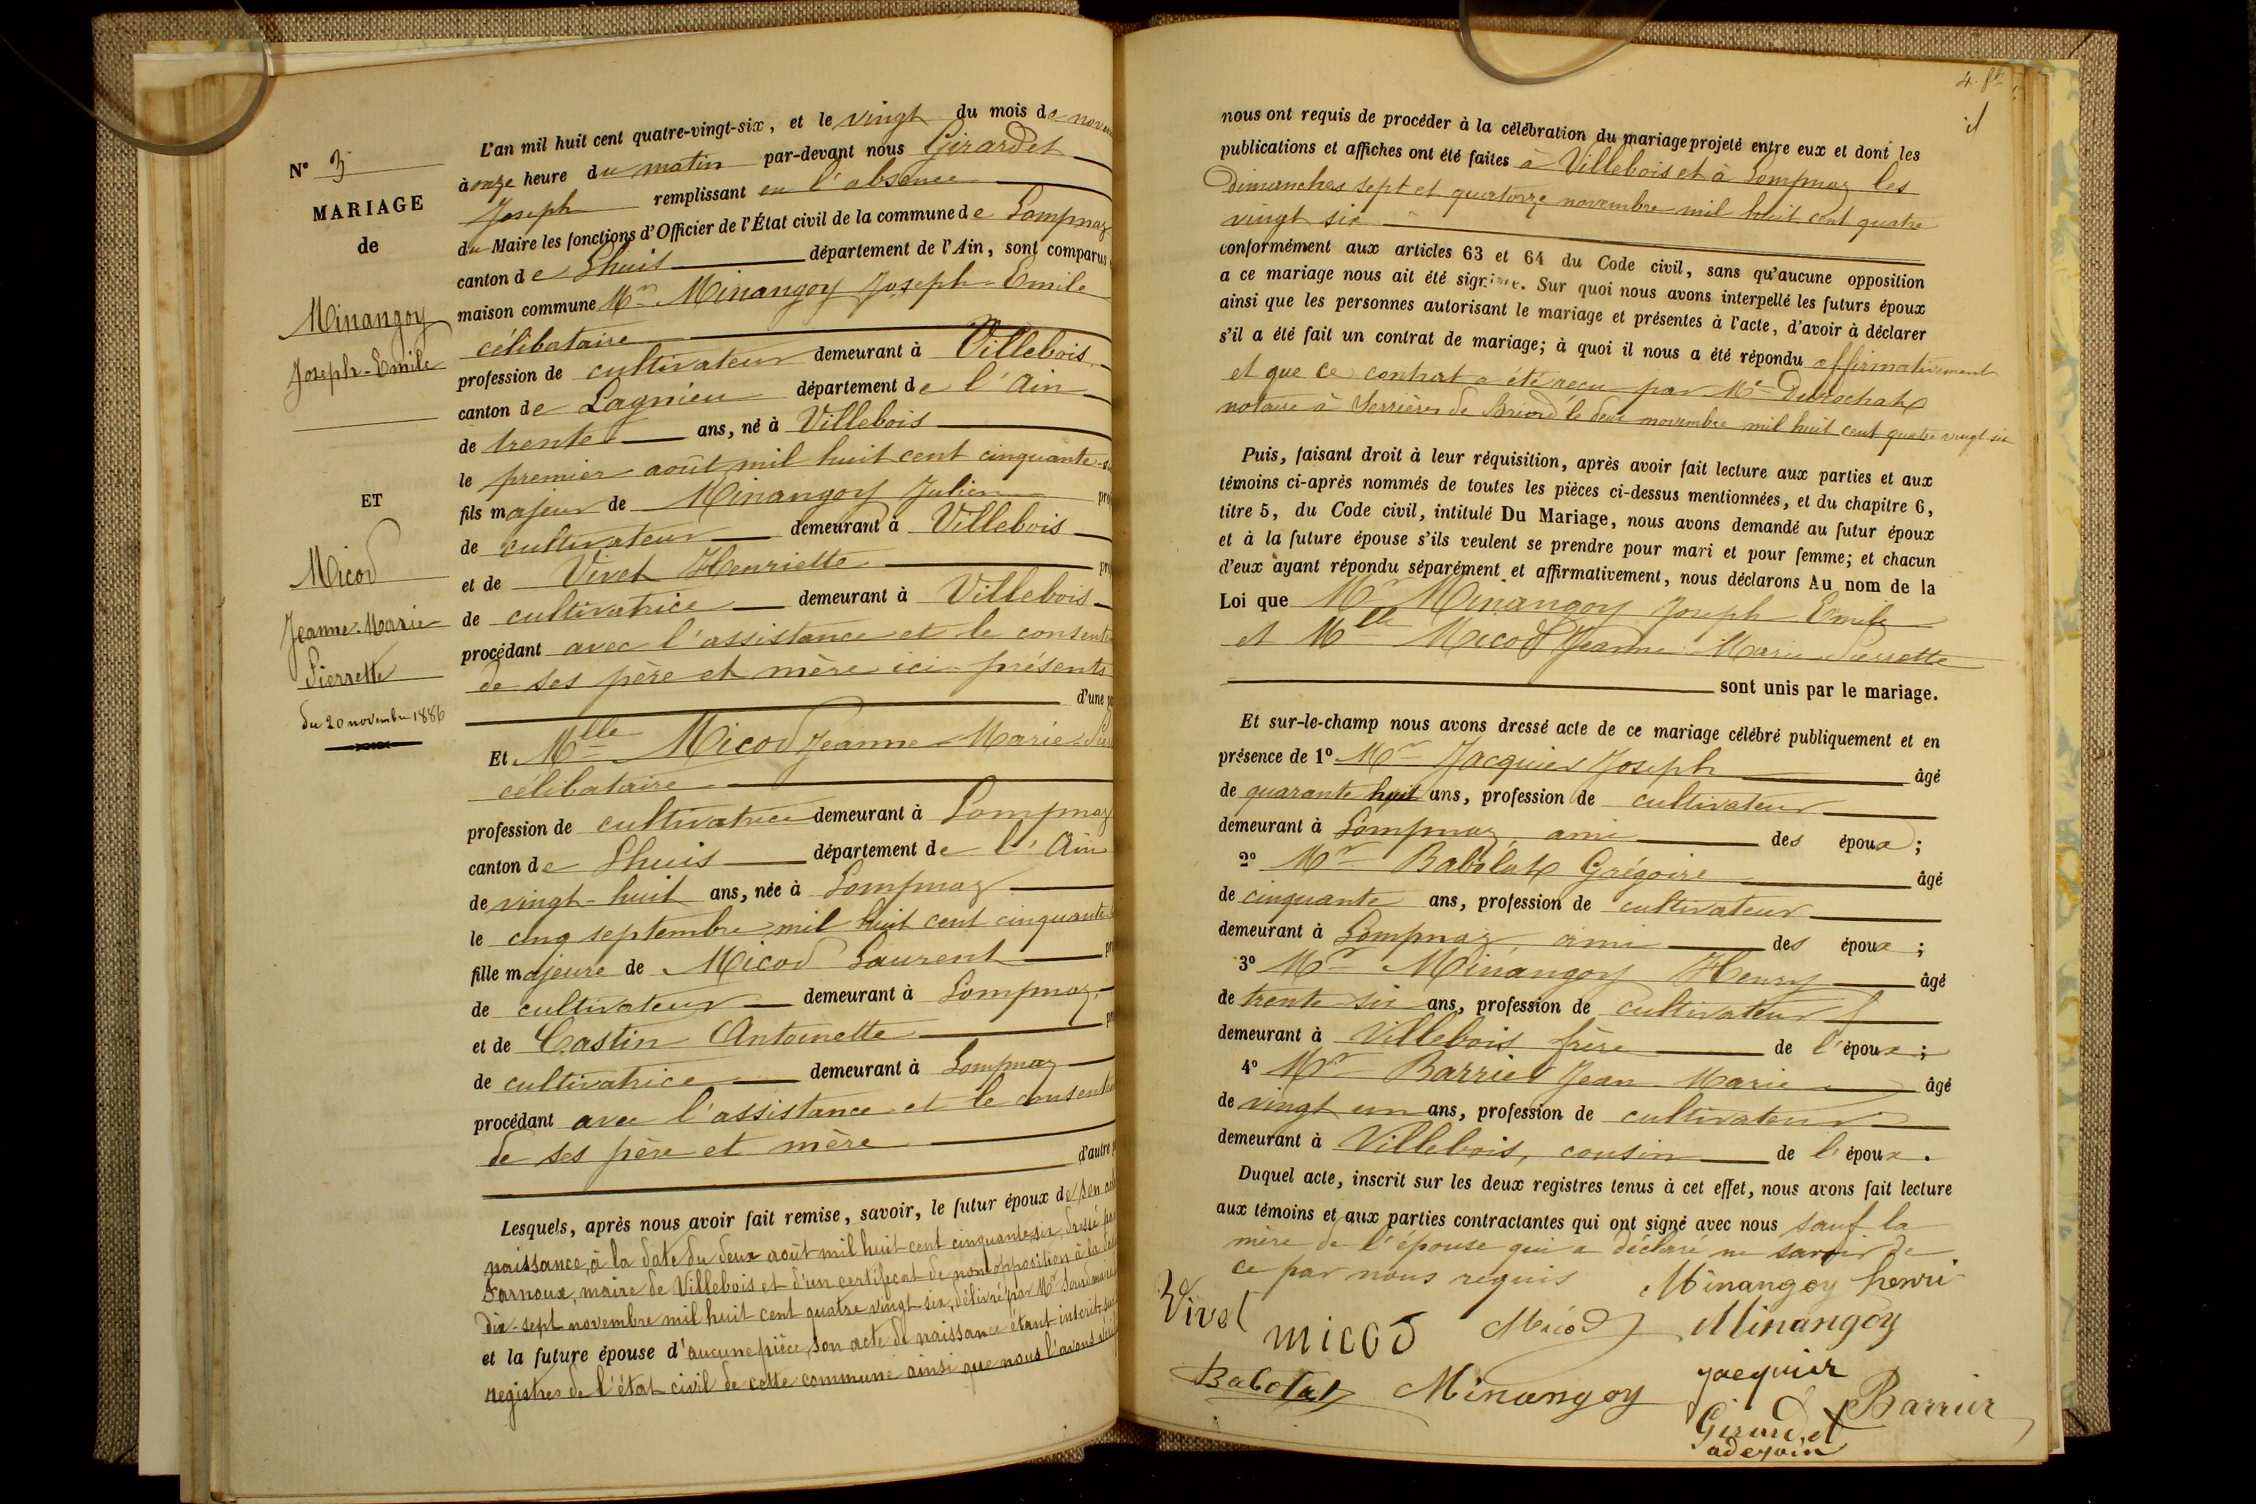 N° 3
MARIAGE
de
Minangoy
Joseph-Emile
ET
Micod
Jeanne-Marie
Pierrette
du 20 novembre 1886
L'an mil huit cent quatre-vingt-six, et le vingt du mois de
à onze heure du matin par-devant nous Girardet
Joseph remplissant en l'absence
du Maire les fonctions d'Officier de l'État civil de la commune de Lompnaz
canton de Lhuis département de l'Ain, sont comparus
maison commune Mr Minangoy Joseph-Emile
célibataire
profession de cultivateur demeurant à Villebois
canton de Lagnieu département de l'Ain
de trente ans, né à Villebois
le premier août mil huit cent cinquante-
fils majeur de Minangoy Julien
de cultivateur demeurant à Villebois
et de Vivet Henriette
de cultivatrice demeurant à Villebois
procédant avec l'assistance et le
de ses père et mère ici présents
d'une
Et Mlle Micod Jeanne-Marie
célibataire
profession de cultivatrice demeurant à Lompnaz
canton de Lhuis département de l'Ain
de vingt-huit ans, née à Lompnaz
le cinq septembre mil huit cent cinquante
fille majeure de Micod Laurent
de cultivateur demeurant à Lompnaz
et de Castin Antoinette
de cultivatrice demeurant à Lompnaz
procédant avec l'assistance et le
de ses père et mère
d'autre
Lesquels, après nous avoir fait remise, savoir, le futur époux de son
naissance, à la date du deux août mil huit cent cinquante six, dressé par
Farnoux, maire de Villebois et d'un certificat de non opposition à la
dix-sept novembre mil huit cent quatre vingt-six, délivré par Mr
et la future épouse d'aucune pièce, son acte de naissance étant inscrit
registres de l'état civil de cette commune ainsi que nous l'avons
nous ont requis de procéder à la célébration du mariage projeté entre eux et dont les
publications et affiches ont été faites à Villebois et à Lompnaz les
Dimanches sept et quatorze novembre mil huit cent quatre
vingt six
conformément aux articles 63 et 64 du Code civil, sans qu'aucune opposition
a ce mariage nous ait été signifiée. Sur quoi nous avons interpellé les futurs époux
ainsi que les personnes autorisant le mariage et présentes à l'acte, d'avoir à déclarer
s'il a été fait un contrat de mariage; à quoi il nous a été répondu affirmativement
et que ce contrat a été reçu par Me Durochat
notaire à Serrières de Briord le deux novembre mil huit cent quatre vingt six
Puis, faisant droit à leur réquisition, après avoir fait lecture aux parties et aux
témoins ci-après nommés de toutes les pièces ci-dessus mentionnées, et du chapitre 6,
titre 5, du Code civil, intitulé Du Mariage, nous avons demandé au futur époux
et à la future épouse s'ils veulent se prendre pour mari et pour femme; et chacun
d'eux ayant répondu séparément et affirmativement, nous déclarons Au nom de la
Loi que Mr Minangoy Joseph-Emile
et Mlle Micod Jeanne-Marie-Pierrette
sont unis par le mariage.
Et sur-le-champ nous avons dressé acte de ce mariage célébré publiquement et en
présence de 1° Mr Jacquier Joseph âgé
de quarante huit ans, profession de cultivateur
demeurant à Lompnaz, ami des époux;
2° Mr Babolat Grégoire âgé
de cinquante ans, profession de cultivateur
demeurant à Lompnaz, ami des époux;
3° Mr Minangoy Henry âgé
de trente six ans, profession de cultivateur
demeurant à Villebois frère de l'époux;
4° Mr Barrier Jean-Marie âgé
de vingt un ans, profession de cultivateur
demeurant à Villebois, cousin de l'époux.
Duquel acte, inscrit sur les deux registres tenus à cet effet, nous avons fait lecture
aux témoins et aux parties contractantes qui ont signé avec nous sauf la
mère de l'épouse qui a déclaré ne savoir de
ce par nous requis Minangoy henri
Vivet micod Micod Minangoy
Babolat Minangoy jacquier
Barrier
Girardet
adejoin